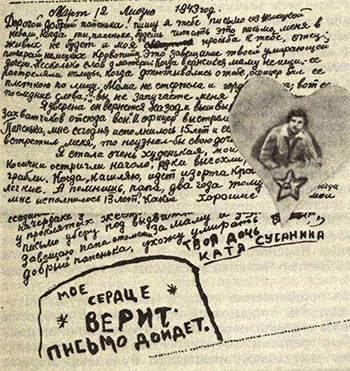 Март, 12, Лиозно 1943 год.
Дорогой, добрый папенька! пишу я тебе письмо из немецкой
неволи. Когда ты, папенька, будешь читать это письмо, меня в
живых не будет. и моя просьба к тебе, отец:
покарай немецких кровопийц. Это завещание твоей умирающей
дочери. Несколько слов о матери. Когда вернешься, маму не ищи. ее
расстреляли немцы. Когда допытывались о тебе, офицер бил ее
плеткою по лицу. Мама не стерпела и гордо вот ее
последние слова: „вы не запугаете меня
Я уверена вернется назад и вышвырнет
захватчиков отсюда вон" и офицер выстрелил
Папенька, мне сегодня исполнилось 15 лет и если
встретил меня, то не узнал бы свою дочь
Я стала очень худенькая, мои
косички остригли наголо, руки высохли,
грабли. Когда я кашляю, идет изо рта кровь
легкие. А помнишь, папа, два года тому
мне исполнилось 13 лет? Какие хорошие
мои
у проклятых
письмо
Завещаю папа отомсти за маму и
добрый папенька, ухожу умирать
ТВОЯ ДОЧЬ
КАТЯ СУСАНИНА
МОЕ
СЕРДЦЕ
ВЕРИТ.
ПИСЬМО ДОЙДЕТ.